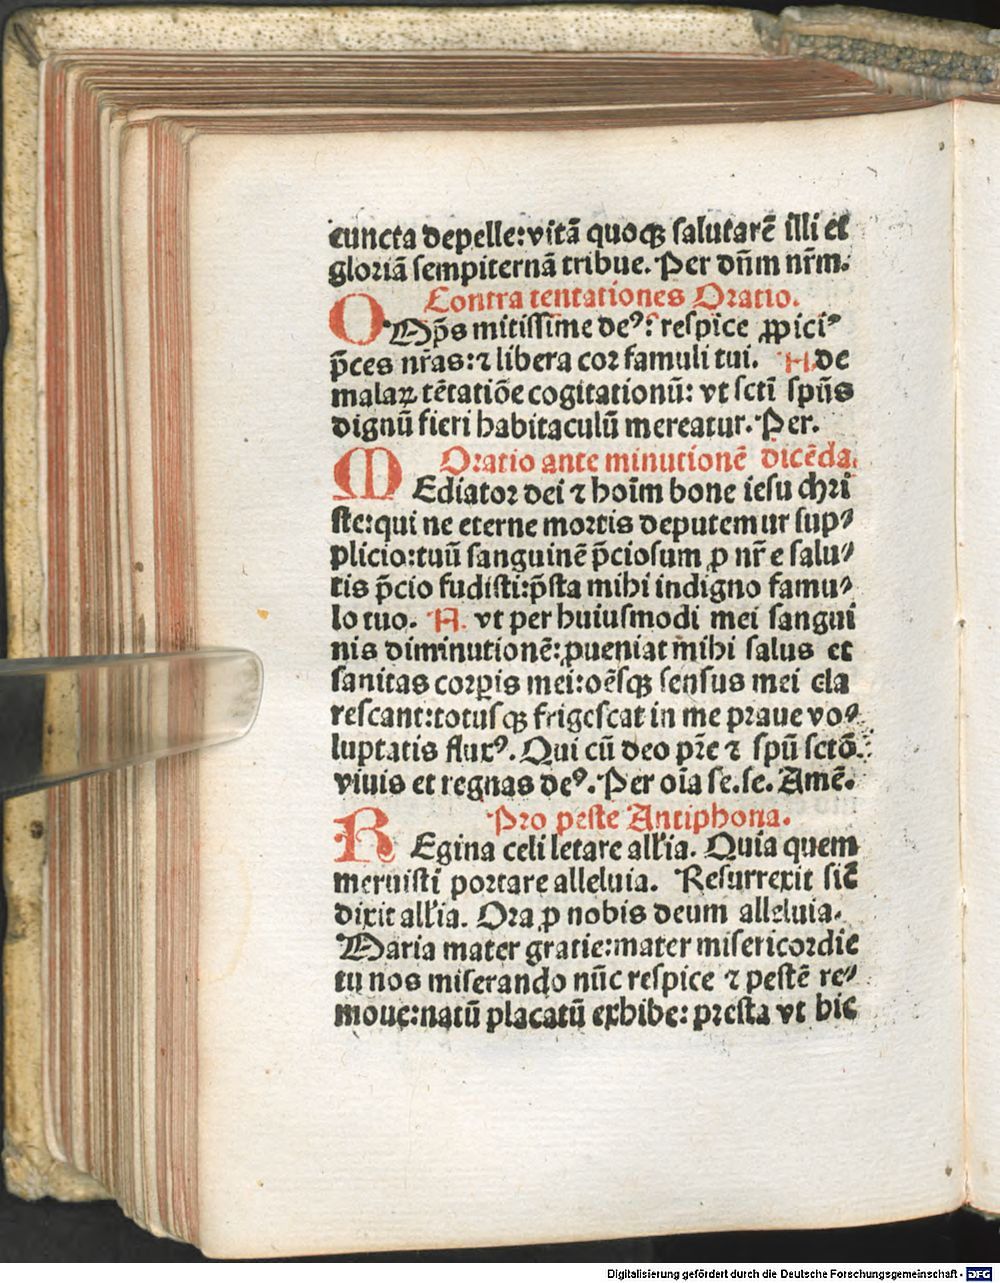 cuncta depelle:vitā quoqꝫ salutarē illi et
gloriā sempiternā tribue. Per dn̄m nr̄m.
Contra tentationes Oratio.
OMp̄s mitissime deꝰ: respice ꝓpiciꝰ
p̄ces nr̄as:⁊ libera cor famuli tui. N. de
malaꝝ tētatiōe cogitationū: vt scti sp̄ūs
dignū fieri habitaculū mereatur. Per.
Oratio ante minutionē dicēda.
MEdiator dei ⁊ hoīm bone iesu chri
ste:qui ne eterne mortis deputemur sup⸗
plicio:tuū sanguinē p̄ciosum ꝓ nr̄e salu⸗
tis p̄cio fudisti:p̄sta mihi indigno famu⸗
lo tuo. N. vt per huiusmodi mei sangui
nis diminutionē:ꝓueniat mihi salus et
sanitas corꝑis mei:oēsqꝫ sensus mei cla
rescant:totusqꝫ frigescat in me praue vo⸗
luptatis fluxꝰ. Qui cū deo pr̄e ⁊ spū sctō.
viuis et regnas deꝰ. Per oīa se.se. Amē.
Pro peste Antiphona.
REgina celi letare all'ia. Quia quem
meruisti portare alleluia. Resurrexit sic̄
dixit all'ia. Ora ꝓ nobis deum alleluia.
Maria mater gratie:mater misericordie
tu nos miserando nūc respice ⁊ pestē re⸗
moue:natū placatū exhibe: presta vt hic
Digitalisierung gefördert durch die Deutsche Forschungsgemeinschaft - DFG